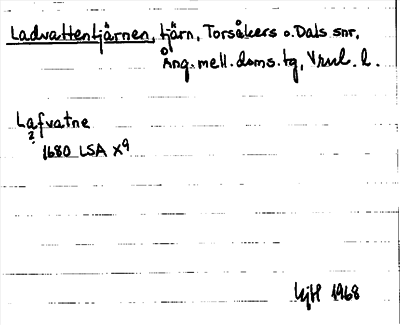 Ladvattentjärnen, tjärn, Torsåkers o. Dals snr,
Ång. mell. doms. tg, V-nrl. l.
Lafvatne
?
1680 LSA X9
1968